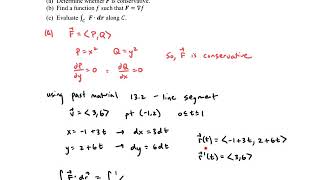 (a) Determine whether F is conservative.
(b) Find a function f such that F = ∇f
(c) Evaluate ∫C F · dr along C.
(a) F⃗ = <P,Q>
P = x² Q = y²
∂P/∂y = 0 = ∂Q/∂x = 0
So, F⃗ is conservative
using past material 13.2 - line segment
v⃗ = <3,6> pt (-1,2) 0≤t≤1
x = -1+3t → dx = 3dt
y = 2+6t → dy = 6dt
r⃗(t) = <-1+3t, 2+6t>
r⃗'(t) = <3,6>